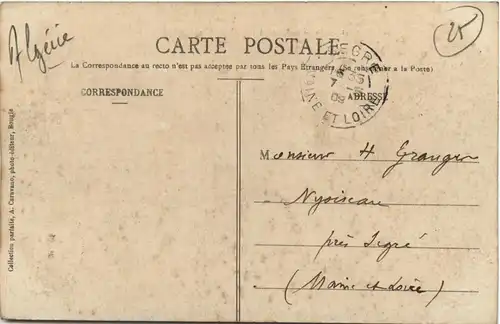 Algérie
25
CARTE POSTALE
La Correspondance au recto n'est pas acceptée par tous les Pays Étrangers (Se renseigner a la Poste)
CORRESPONDANCE
ADRESSE
SEGRÉ
7 35
09
MAINE ET LOIRE
Monsieur H Granger
Nyoiseau
près Segré
(Maine et Loire)
Collection postale, A. Caravano, photo-éditeur, Bougie